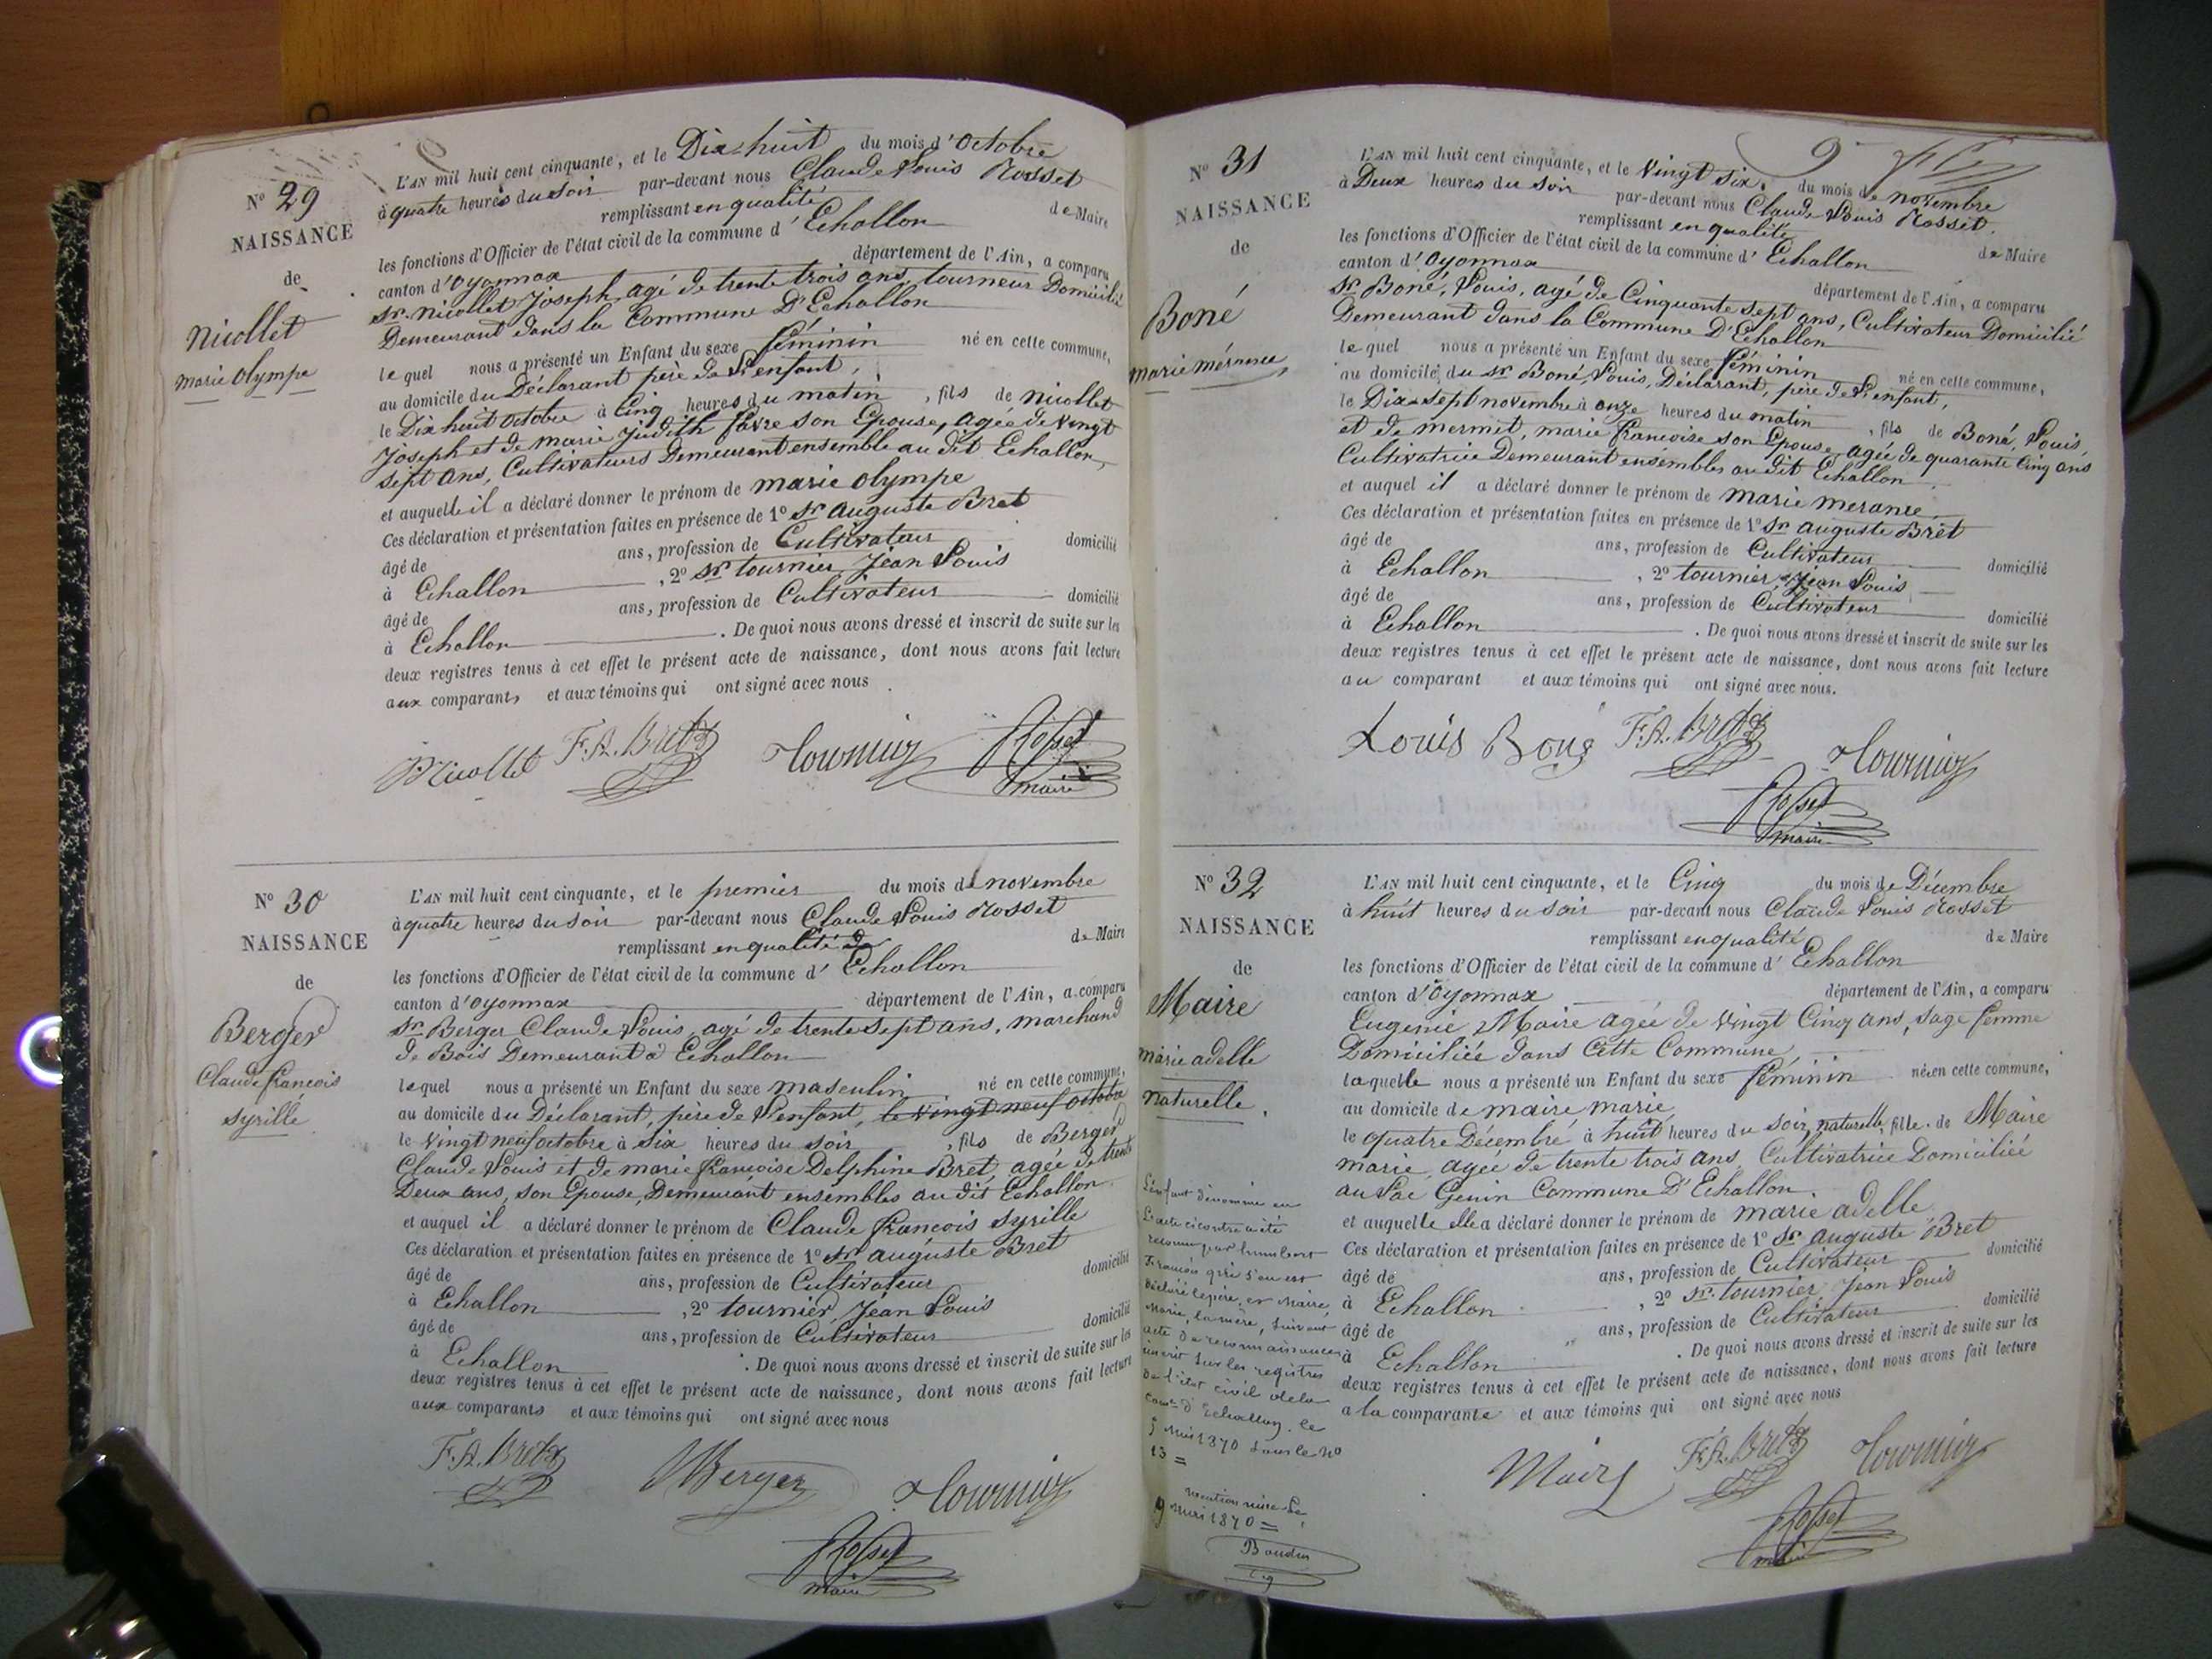 N° 29
NAISSANCE
de
Nicollet
marie Olympe
L'AN mil huit cent cinquante, et le Dix-huit du mois d'Octobre
à quatre heures du soir par-devant nous Claude Louis Rosset
remplissant en qualité de Maire
les fonctions d'Officier de l'état civil de la commune d'Echallon
canton d'Oyonnax département de l'Ain, a comparu
Sr. Nicollet Joseph, agé de trente trois ans, tourneur Domicilié
Demeurant dans la Commune D'Echallon
lequel nous a présenté un Enfant du sexe féminin né en cette commune,
au domicile du Déclarant père de l'enfant,
le Dix huit Octobre à Cinq heures du matin, fils de Nicollet
Joseph et de marie Judith favre son Epouse, agée de Vingt
sept ans, Cultivateurs Demeurant ensemble au dit Echallon,
et auquelle il a déclaré donner le prénom de marie Olympe
Ces déclaration et présentation faites en présence de 1° Sr auguste Bret
âgé de ans, profession de Cultivateur domicilié
à Echallon, 2° Sr tournier, Jean Louis
âgé de ans, profession de Cultivateur domicilié
à Echallon. De quoi nous avons dressé et inscrit de suite sur les
deux registres tenus à cet effet le présent acte de naissance, dont nous avons fait lecture
aux comparants et aux témoins qui ont signé avec nous
Nicollet F.A. Bret Tournier Rosset
maire
N° 30
NAISSANCE
de
Berger
Claude françois
syrille
L'AN mil huit cent cinquante, et le premier du mois de novembre
à quatre heures du soir par-devant nous Claude Louis Rosset
remplissant en qualité de de Maire
les fonctions d'Officier de l'état civil de la commune d'Echallon
canton d'Oyonnax département de l'Ain, a comparu
Sr Berger Claude Louis, agé de trente sept ans, marchand
de Bois Demeurant à Echallon
lequel nous a présenté un Enfant du sexe masculin né en cette commune,
au domicile du Déclarant, père de l'enfant, le vingt neuf octobre
le vingt neuf octobre à six heures du soir, fils de Berger
Claude Louis et de marie françoise Delphine Bret, agée de trente
Deux ans, son Epouse, Demeurant ensembles au dit Echallon
et auquel il a déclaré donner le prénom de Claude françois syrille
Ces déclaration et présentation faites en présence de 1° Sr auguste Bret
âgé de ans, profession de Cultivateur domicilié
à Echallon, 2° tournier, Jean Louis
âgé de ans, profession de Cultivateur domicilié
à Echallon. De quoi nous avons dressé et inscrit de suite sur les
deux registres tenus à cet effet le présent acte de naissance, dont nous avons fait lecture
aux comparants et aux témoins qui ont signé avec nous
F.A. Bret Berger Tournier
Rosset
maire
9
N° 31
NAISSANCE
de
Boné
marie mérance
L'AN mil huit cent cinquante, et le Vingt six du mois de novembre
à Deux heures du soir par-devant nous Claude Louis Rosset.
remplissant en qualité de Maire
les fonctions d'Officier de l'état civil de la commune d'Echallon
canton d'Oyonnax département de l'Ain, a comparu
Sr Boné, Louis, agé de Cinquante sept ans, Cultivateur Domicilié
Demeurant dans la Commune D'Echallon
lequel nous a présenté un Enfant du sexe féminin né en cette commune,
au domicile du Sr Boné, Louis, Déclarant, père de l'enfant,
le Dix-sept novembre à onze heures du matin, fils de Boné, Louis,
et de mermet, marie françoise son Epouse, agée de quarante Cinq ans
Cultivatrice Demeurant ensembles au dit Echallon.
et auquel il a déclaré donner le prénom de marie merance.
Ces déclaration et présentation faites en présence de 1° Sr auguste Bret
âgé de ans, profession de Cultivateur domicilié
à Echallon, 2° tournier Jean Louis
âgé de ans, profession de Cultivateur domicilié
à Echallon. De quoi nous avons dressé et inscrit de suite sur les
deux registres tenus à cet effet le présent acte de naissance, dont nous avons fait lecture
au comparant et aux témoins qui ont signé avec nous.
Louis Boné F.A. Bret Tournier
Rosset
maire
N° 32
NAISSANCE
de
Maire
marie adelle
naturelle.
L'enfant dénommé en
l'acte ci contre a été
reconnu par humbert
François qui s'en est
déclaré le père, et Maire,
Marie, la mère, suivant
acte de reconnaissance
inscrit sur les registres
de l'état civil de la
comne d'Echallon, le
9 Mai 1870 sous le N°
13 =
mention mise le
9 Mai 1870 =
L'AN mil huit cent cinquante, et le Cinq du mois de Décembre
à huit heures du soir par-devant nous Claude Louis Rosset
remplissant en qualité de Maire
les fonctions d'Officier de l'état civil de la commune d'Echallon
canton d'Oyonnax département de l'Ain, a comparu
Eugenie Maire agée de Vingt Cinq ans, sage femme
Domiciliée dans Cette Commune
laquelle nous a présenté un Enfant du sexe féminin née en cette commune,
au domicile de maire marie
le quatre Décembre à huit heures du soir, naturelle, fille de Maire
marie, agée de trente trois ans, Cultivatrice Domiciliée
au Lac Genin Commune D'Echallon.
et auquelle elle a déclaré donner le prénom de marie adelle
Ces déclaration et présentation faites en présence de 1° Sr auguste Bret
âgé de ans, profession de Cultivateur domicilié
à Echallon, 2° Sr. tournier Jean Louis
âgé de ans, profession de Cultivateur domicilié
à Echallon. De quoi nous avons dressé et inscrit de suite sur les
deux registres tenus à cet effet le présent acte de naissance, dont nous avons fait lecture
a la comparante et aux témoins qui ont signé avec nous
Maire F.A. Bret Tournier
Rosset
maire